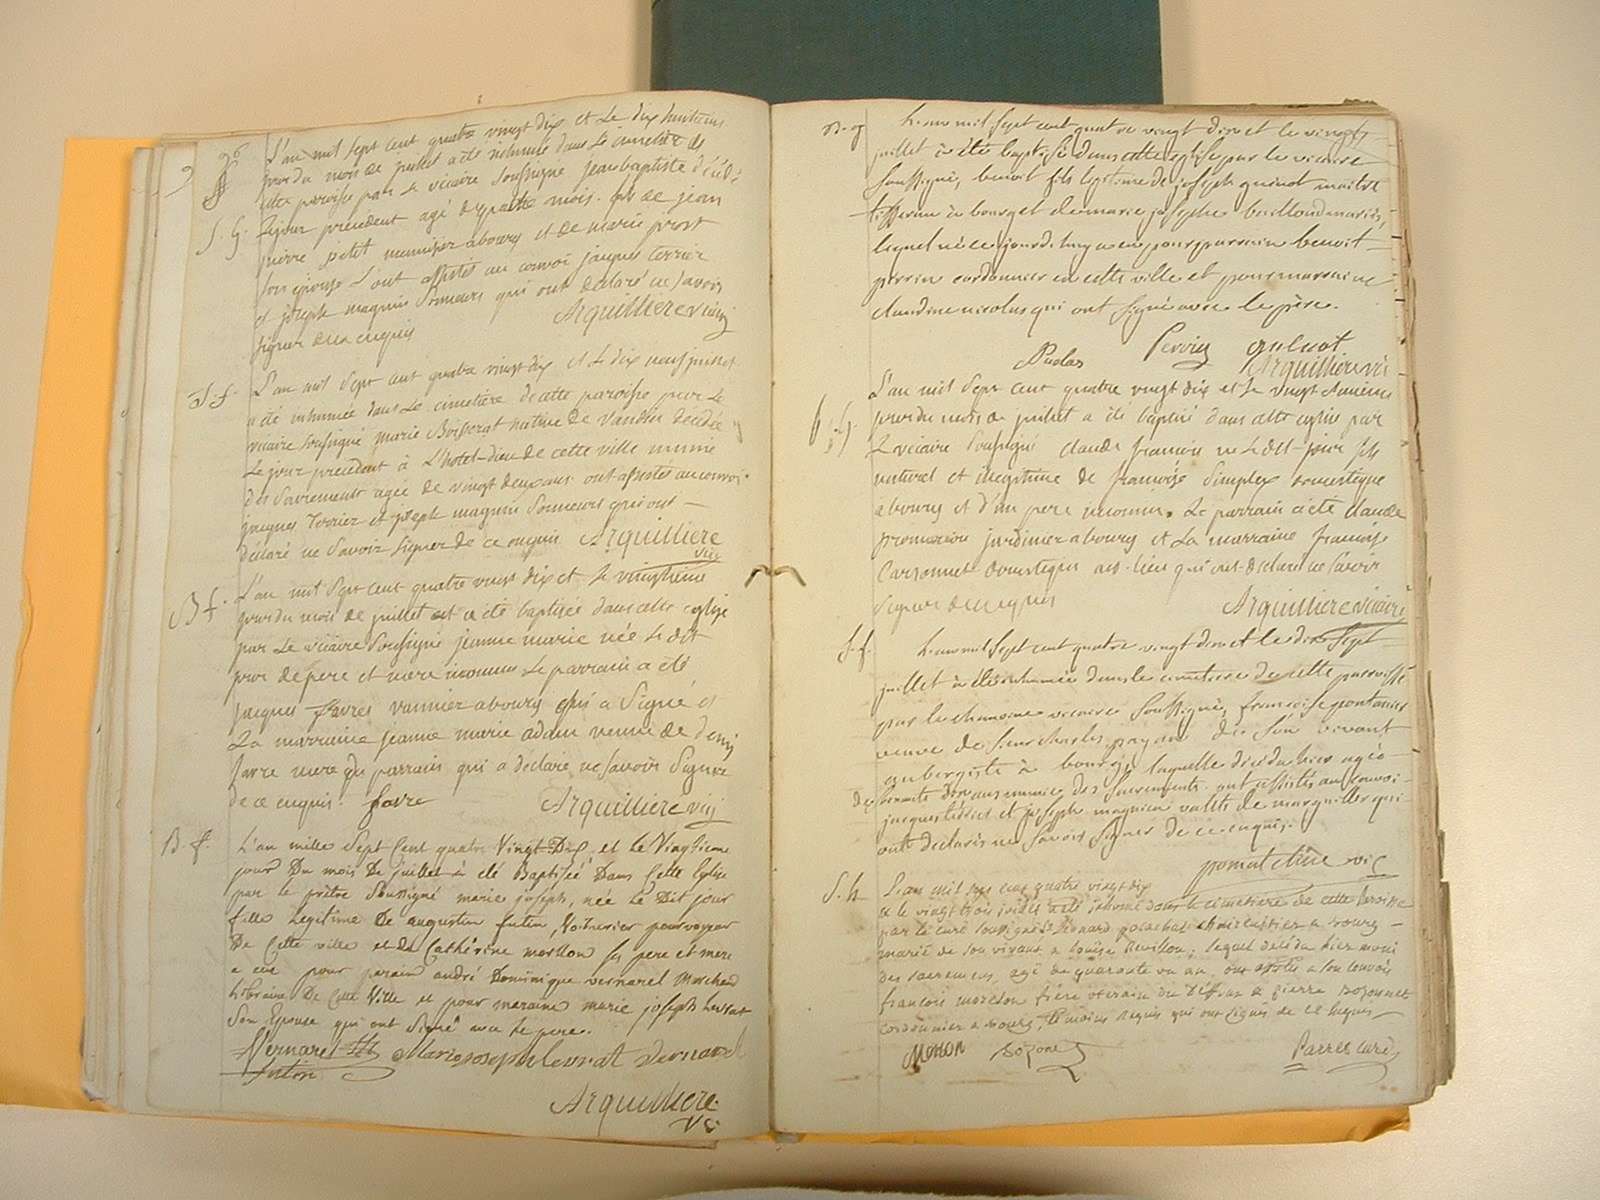 L'an mil sept cent quatre vingt dix et Le dix huitieme
jour du mois de juillet a été inhumé dans Le cimetiere de
cette paroisse par Le vicaire Soussigné jean baptiste décédé
S. G. Le jour precedent agé de quatre mois fils de jean
pierre petit menuisier a bourg et de marie prost
son epouse L'ont assistés au convoi jacques terrier
et joseph magnin Sonneurs qui ont déclaré ne Savoir
signer de ce enquis Arquilliere vicaire
S. f. L'an mil Sept cent quatre vingt dix et Le dix neuf juillet
a été inhumée dans Le cimetiere de cette paroisse par Le
vicaire Soussigné marie Boisserat native de Vandein decédée
Le jour precedent à L'hotel-dieu de cette ville munie
des Sacrements agée de vingt deux ans ont assistés au convoi
jacques Terrier et joseph magnin Sonneurs qui ont
déclaré ne Savoir Signer de ce enquis Arquilliere
vic
B f. L'an mil Sept cent quatre vingt dix et Le vingtieme
jour du mois de juillet a été baptisée dans cette eglise
par Le vicaire Soussigné jeanne marie née Le dit
jour de pere et mere inconnus Le parrain a été
jacques favre vannier a bourg qui a Signé et
La marraine jeanne marie adam veuve de denis
favre mere du parrain qui a déclaré ne Savoir Signer
de ce enquis. favre Arquilliere vic
B. f. L'an mille Sept Cent quatre Vingt-Dix et Le Vingtieme
jour Du mois De juillet à été Baptisée Dans Cette Eglise
par le prêtre Soussigné marie joseph, née Le Dit jour
fille Legitime De augustin futin, Voiturier pourvoyeur
De Cette ville et de Cathérine morllon ses pere et mere
a eue pour parain andré Dominique vernarel Marchand
Libraire De Cette Ville et pour maraine marie joseph Levrat
Son Epouse qui ont Signé avec le pere.
Vernarel Marie joseph levrat vernarel
futin
Arquilliere
vic
B. g L'an mil sept cent quatre vingt dix et le vingt
juillet à été baptisé dans cette eglise par le vicaire
soussigné, benoit fils legitime de joseph guenot maitre
tisseran à bourg et de marie josephe bouilloud mariés,
lequel né ce jourd'huy a eu pour parrain benoit
perrin cordonnier en cette ville et pour marraine
claudine nicolas qui ont signé avec le père.
Perrin guenot
Arquilliere vic
b. G. L'an mil Sept cent quatre vingt dix et Le vingt deuxieme
jour du mois de juillet a été baptisé dans cette eglise par
Le vicaire Soussigné claude francois né Le dit jour fils
naturel et illegitime de francoise Simplex domestique
a bourg et d'un pere inconnu. Le parrain a été claude
jardinier a bourg et La marraine francoise
Carronnet domestique au-dit lieu qui ont declaré ne Savoir
Signer de ce enquis Arquilliere vicaire
S. f. L'an mil sept cent quatre vingt dix et le dix sept
juillet à été inhumée dans le cimetiere de cette parroisse
par le chanoine vicaire soussigné, francoise pontanier
veuve de sieur charles payan de son vivant
aubergiste à bourg, laquelle décédée hier agée
de soixante dix ans munie des Sacrements ont assistés au convoi
jacques terrier et joseph magnien valets de marguillier qui
ont declarés ne savoir signer de ce enquis.
vic
S. h L'an mil sept cent quatre vingt dix
et le vingt trois juillet a été inhumé dans le cimetiere de cette Paroisse
par le curé soussigné a bourg
marié de son vivant a Louise Revillon; lequel decédé hier muni
des sacremens, agé de quarante un an, ont assisté a son convoi
francois morellon frère uterain du Deffunt et pierre Bozonnet
cordonnier a bourg, témoins requis qui ont signés de ce enquis
Morlon Bozonet Parres curé